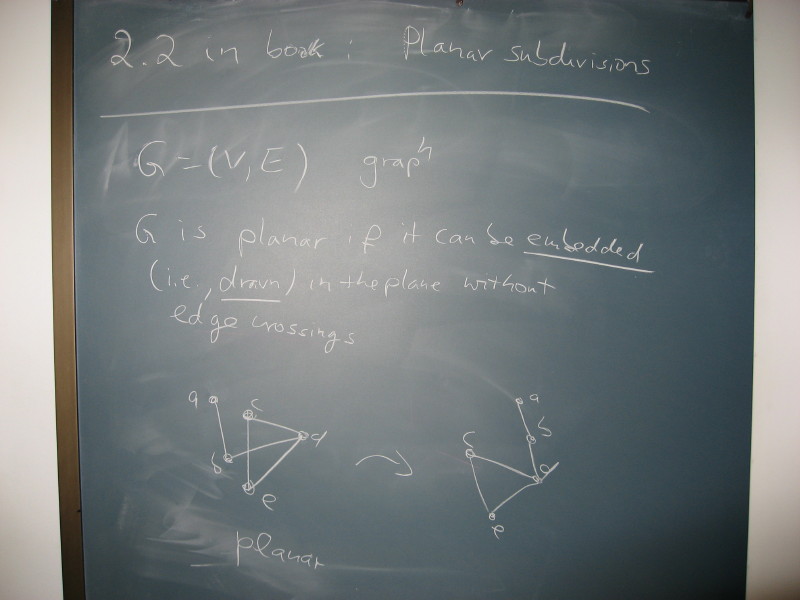 2.2 in book : Planar subdivisions
G = (V, E) graph
G is planar if it can be embedded
(i.e., drawn) in the plane without
edge crossings
a c d b e
a b c d e
planar